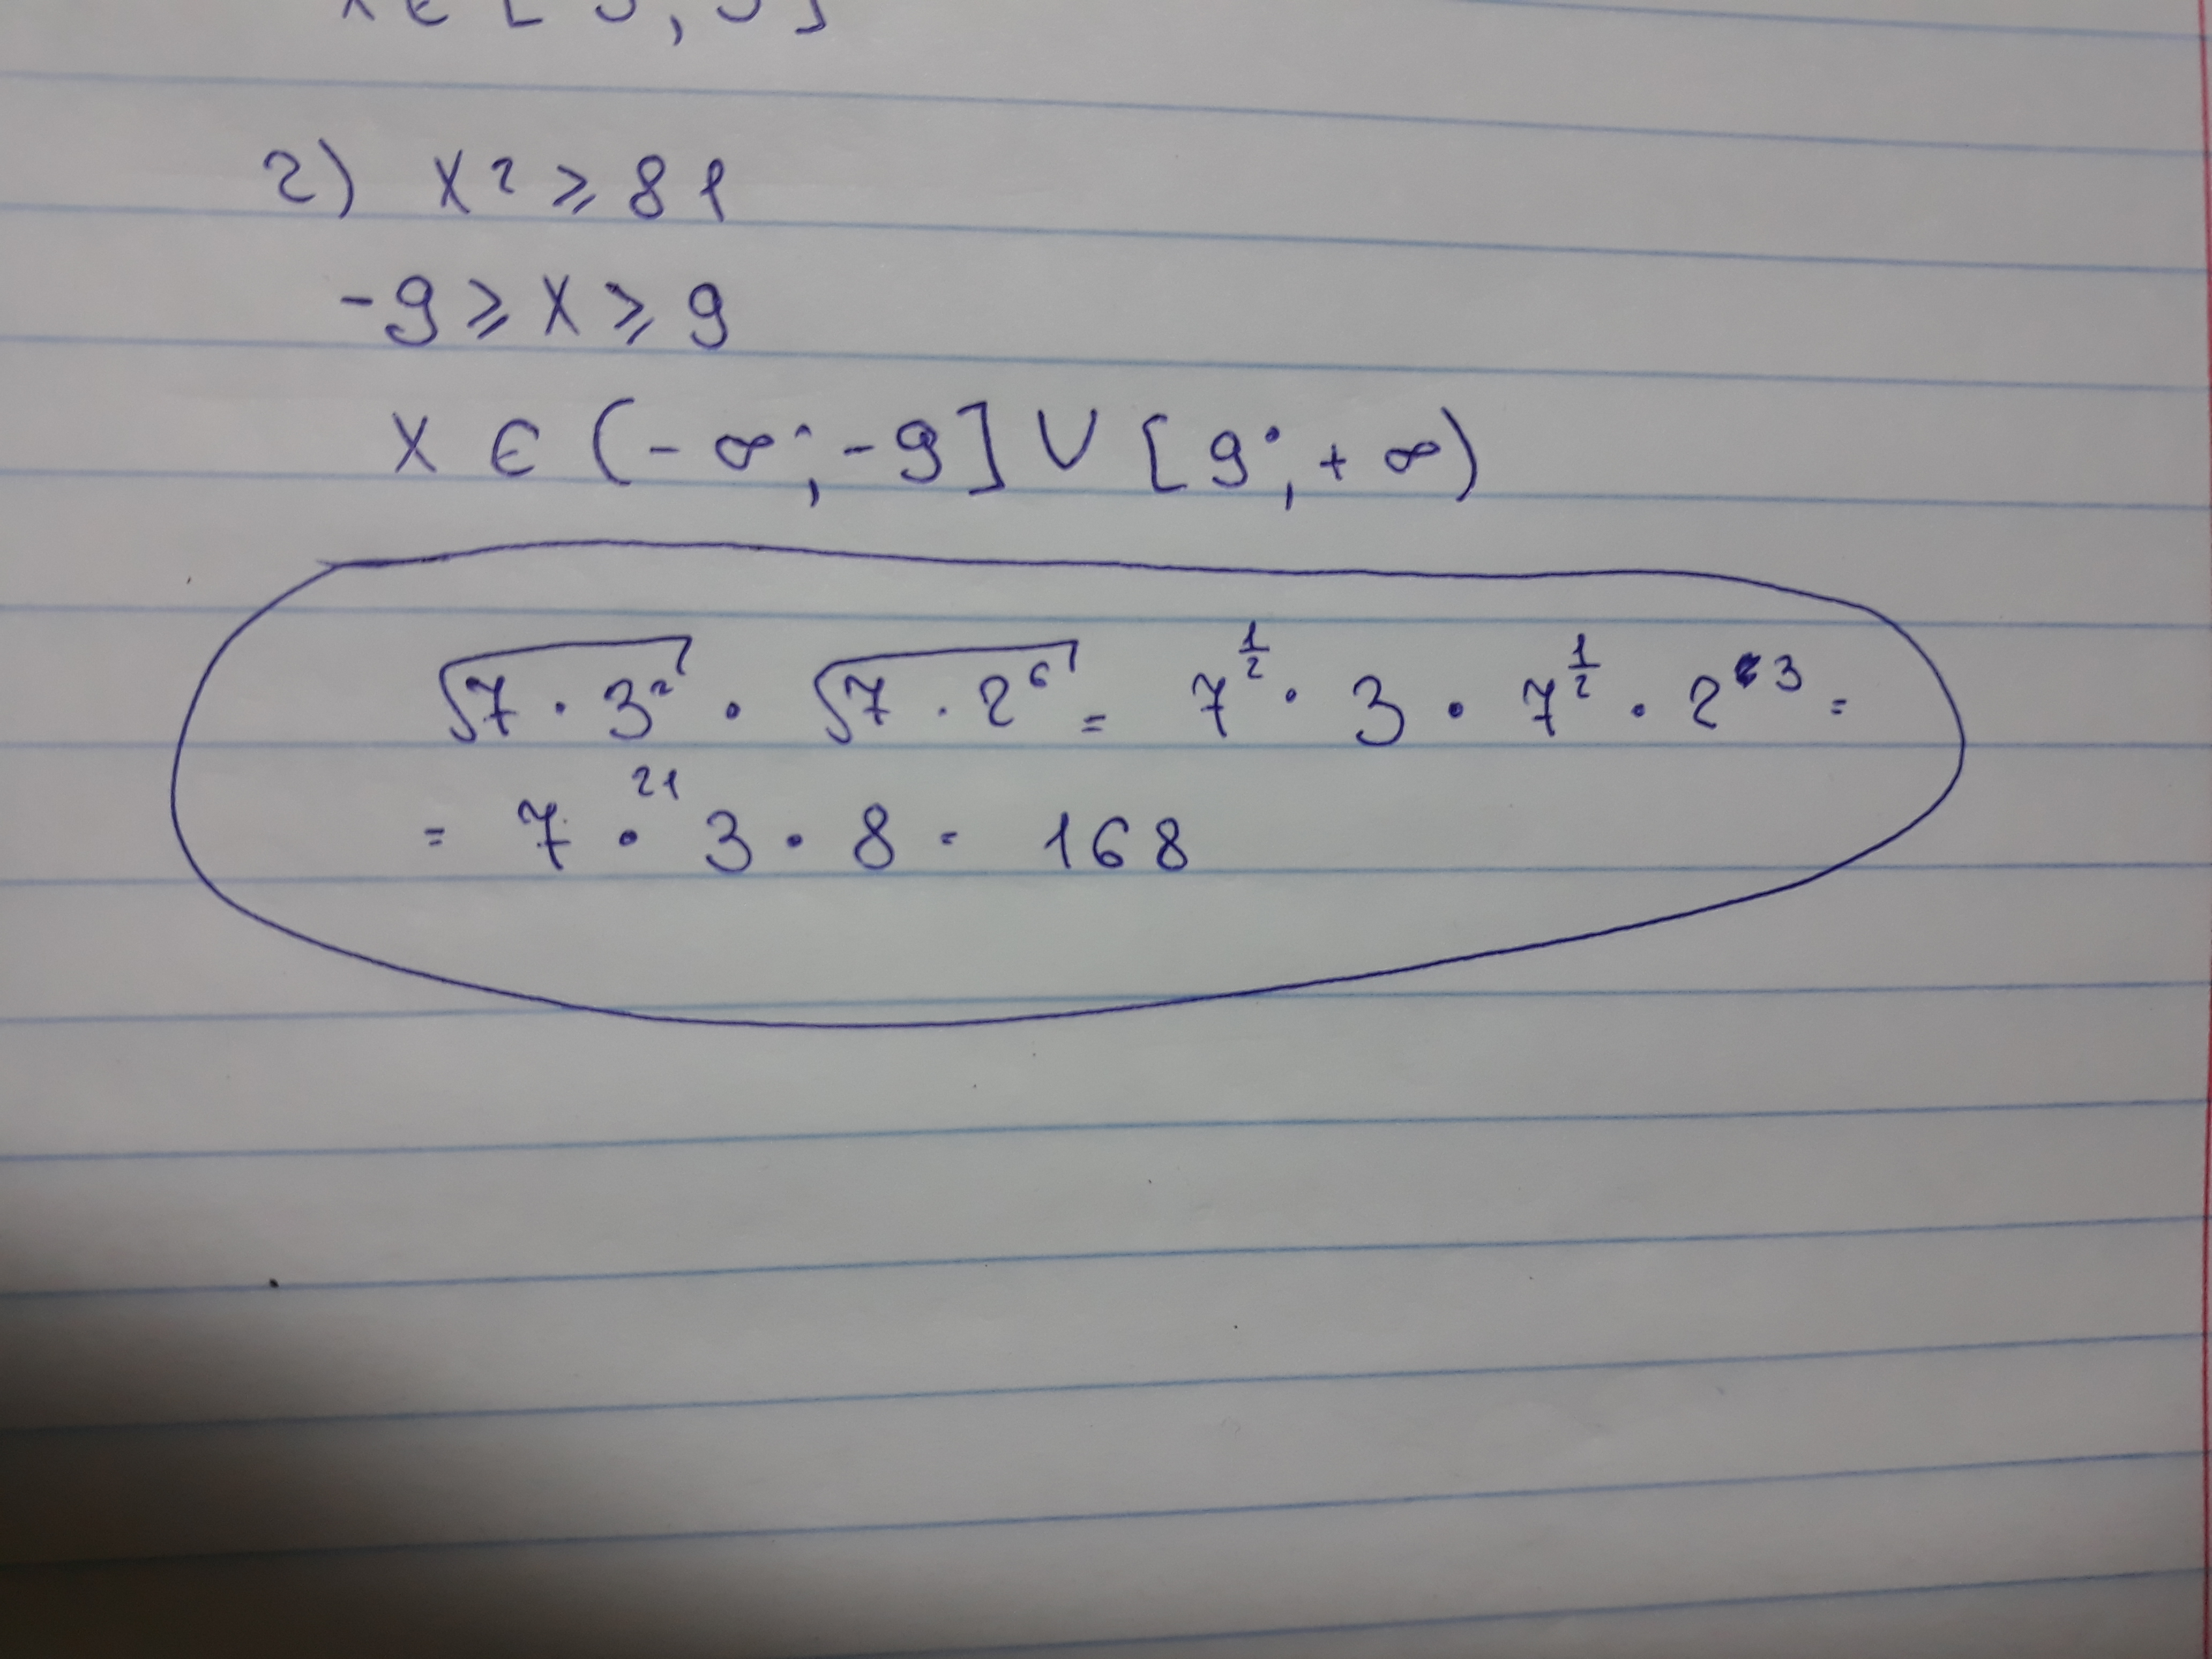 2) x² ⩾ 81
-9 ⩾ x ⩾ 9
x ∈ (-∞; -9] ∪ [9; +∞)
√7 · 3² · √7 · 2⁶ = 7^½ · 3 · 7^½ · 2³ =
21
= 7 · 3 · 8 = 168